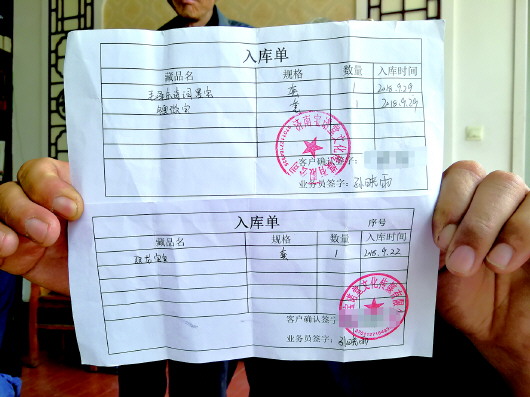 入库单
藏品名 规格 数量 入库时间
毛泽东诗词墨宝 套 1 2018.9.29
套 1 2018.9.29
客户确认签字：
业务员签字：孙晓雨
入库单 序号
藏品名 规格 数量 入库时间
套 1 2018.9.22
客户确认签字：
业务员签字：孙晓雨